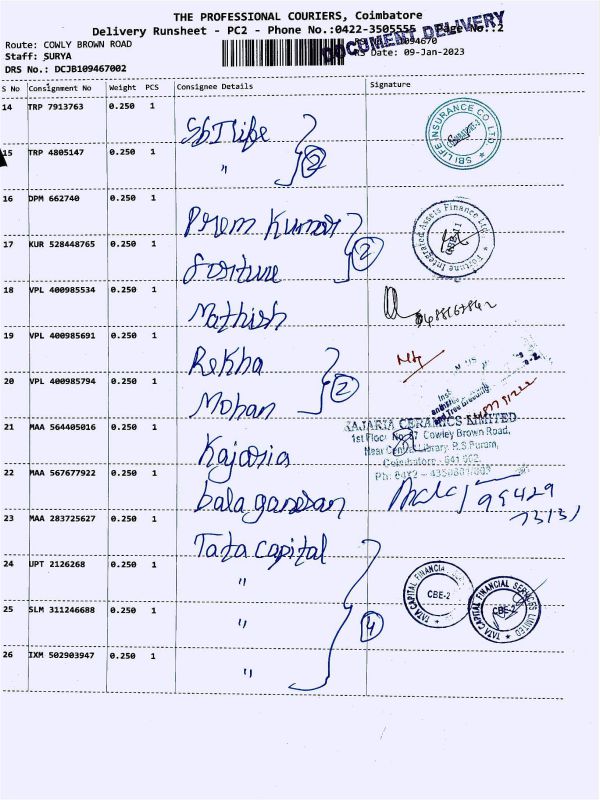 THE PROFESSIONAL COURIERS, Coimbatore
Delivery Runsheet - PC2 - Phone No.:0422-3505555 Page No.:2
DOCUMENT DELIVERY
Route: COWLY BROWN ROAD
Staff: SURYA
DRS Date: 09-Jan-2023
DRS No.: DCJB109467002
S No Consignment No Weight PCS Consignee Details Signature
14 TRP 7913763 0.250 1 SbI life
SBI LIFE INSURANCE CO. LTD.
15 TRP 4805147 0.250 1 " 2
16 DPM 662740 0.250 1 Prem Kumar
17 KUR 528448765 0.250 1 Fortune 2
Fortune Integrated Assets Finance Ltd
18 VPL 400985534 0.250 1 Mathish
19 VPL 400985691 0.250 1 Rekha
20 VPL 400985794 0.250 1 Mohan 2
21 MAA 564405016 0.250 1 Kajaria
KAJARIA CERAMICS LIMITED
1st Floor No. 87 Cowley Brown Road,
Near Central Library, R.S.Puram,
Coimbatore - 641 002.
22 MAA 567677922 0.250 1 bala ganesan
99429
73131
23 MAA 283725627 0.250 1 Tata capital
24 UPT 2126268 0.250 1 "
TATA CAPITAL FINANCIAL
CBE-2
TATA CAPITAL FINANCIAL SERVICES LIMITED
CBE-2
25 SLM 311246688 0.250 1 " 4
26 IXM 502903947 0.250 1 "